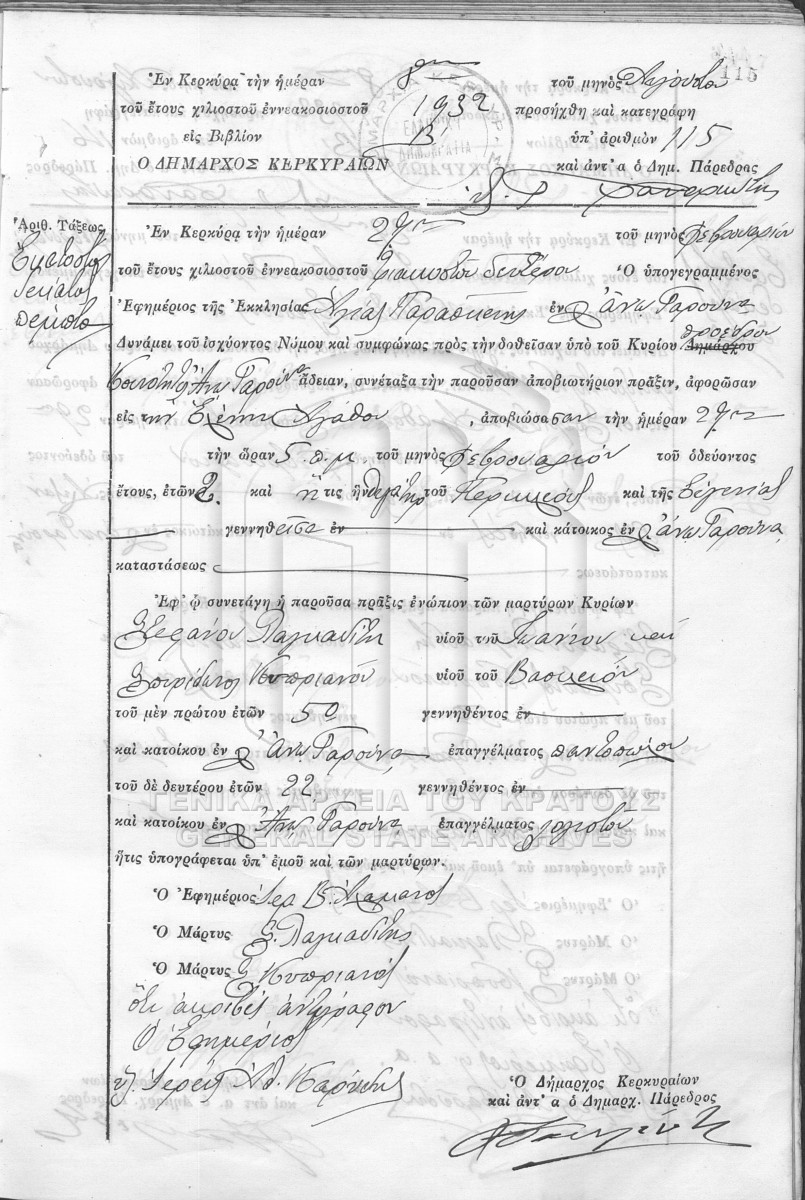 115
Ἐν Κερκύρᾳ τὴν ἡμέραν 8ην τοῦ μηνὸς Αὐγούστου
τοῦ ἔτους χιλιοστοῦ ἐννεακοσιοστοῦ 1932 προσήχθη καὶ κατεγράφη
εἰς Βιβλίον Β' ὑπ' ἀριθμὸν 115
Ο ΔΗΜΑΡΧΟΣ ΚΕΡΚΥΡΑΙΩΝ καὶ ἀντ' α ὁ Δημ. Πάρεδρος
Ἀριθ. Τάξεως
Ἑκατοστὸν
δέκατον
πέμπτον
Ἐν Κερκύρᾳ τὴν ἡμέραν τοῦ μηνὸς Φεβρουαρίου
τοῦ ἔτους χιλιοστοῦ ἐννεακοσιοστοῦ τριακοστοῦ δευτέρου Ὁ ὑπογεγραμμένος
Ἐφημέριος τῆς Ἐκκλησίας Ἁγίας Παρασκευῆς ἐν Ἄνω Γαρούνα
Δυνάμει τοῦ ἰσχύοντος Νόμου καὶ συμφώνως πρὸς τὴν δοθεῖσαν ὑπὸ τοῦ Κυρίου Δημάρχου προέδρου
Κοινότητος Ἄνω Γαρούνα ἄδειαν, συνέταξα τὴν παροῦσαν ἀποβιωτήριον πρᾶξιν, ἀφορῶσαν
εἰς την Ἑλένην Ἀγάθου, ἀποβιώσασαν τὴν ἡμέραν
τὴν ὥραν 5 π.μ. τοῦ μηνὸς Φεβρουαρίου τοῦ ὁδεύοντος
ἔτους, ἐτῶν 2 καὶ ἥτις ἦν θυγάτηρ τοῦ Περικλέους καὶ τῆς Εὐγενίας
γεννηθεῖσα ἐν καὶ κάτοικος ἐν Ἄνω Γαρούνα
καταστάσεως
Ἐφ' ᾧ συνετάγη ἡ παροῦσα πρᾶξις ἐνώπιον τῶν μαρτύρων Κυρίων
Στεφάνου Λαγκαδίτη υἱοῦ τοῦ Ἰωάννου καὶ
Σπυρίδωνος Κυπριανοῦ υἱοῦ τοῦ Βασιλείου
τοῦ μὲν πρώτου ἐτῶν 50 γεννηθέντος ἐν
καὶ κατοίκου ἐν Ἄνω Γαρούνα ἐπαγγέλματος παντοπώλου
τοῦ δὲ δευτέρου ἐτῶν 22 γεννηθέντος ἐν
ΓΕΝΙΚΑ ΑΡΧΕΙΑ ΤΟΥ ΚΡΑΤΟΥΣ
καὶ κατοίκου ἐν Ἄνω Γαρούνα ἐπαγγέλματος
GENERAL STATE ARCHIVES
ἥτις ὑπογράφεται ὑπ' ἐμοῦ καὶ τῶν μαρτύρων.
Ὁ Ἐφημέριος Ἱερ Β.
Ὁ Μάρτυς Σ. Λαγκαδίτης
Ὁ Μάρτυς Σ Κυπριανός
ὅτι ἀκριβὲς ἀντίγραφον
Ὁ Ἐφημέριος
Ἱερεὺς
Ὁ Δήμαρχος Κερκυραίων
καὶ ἀντ' α ὁ Δημαρχ. Πάρεδρος